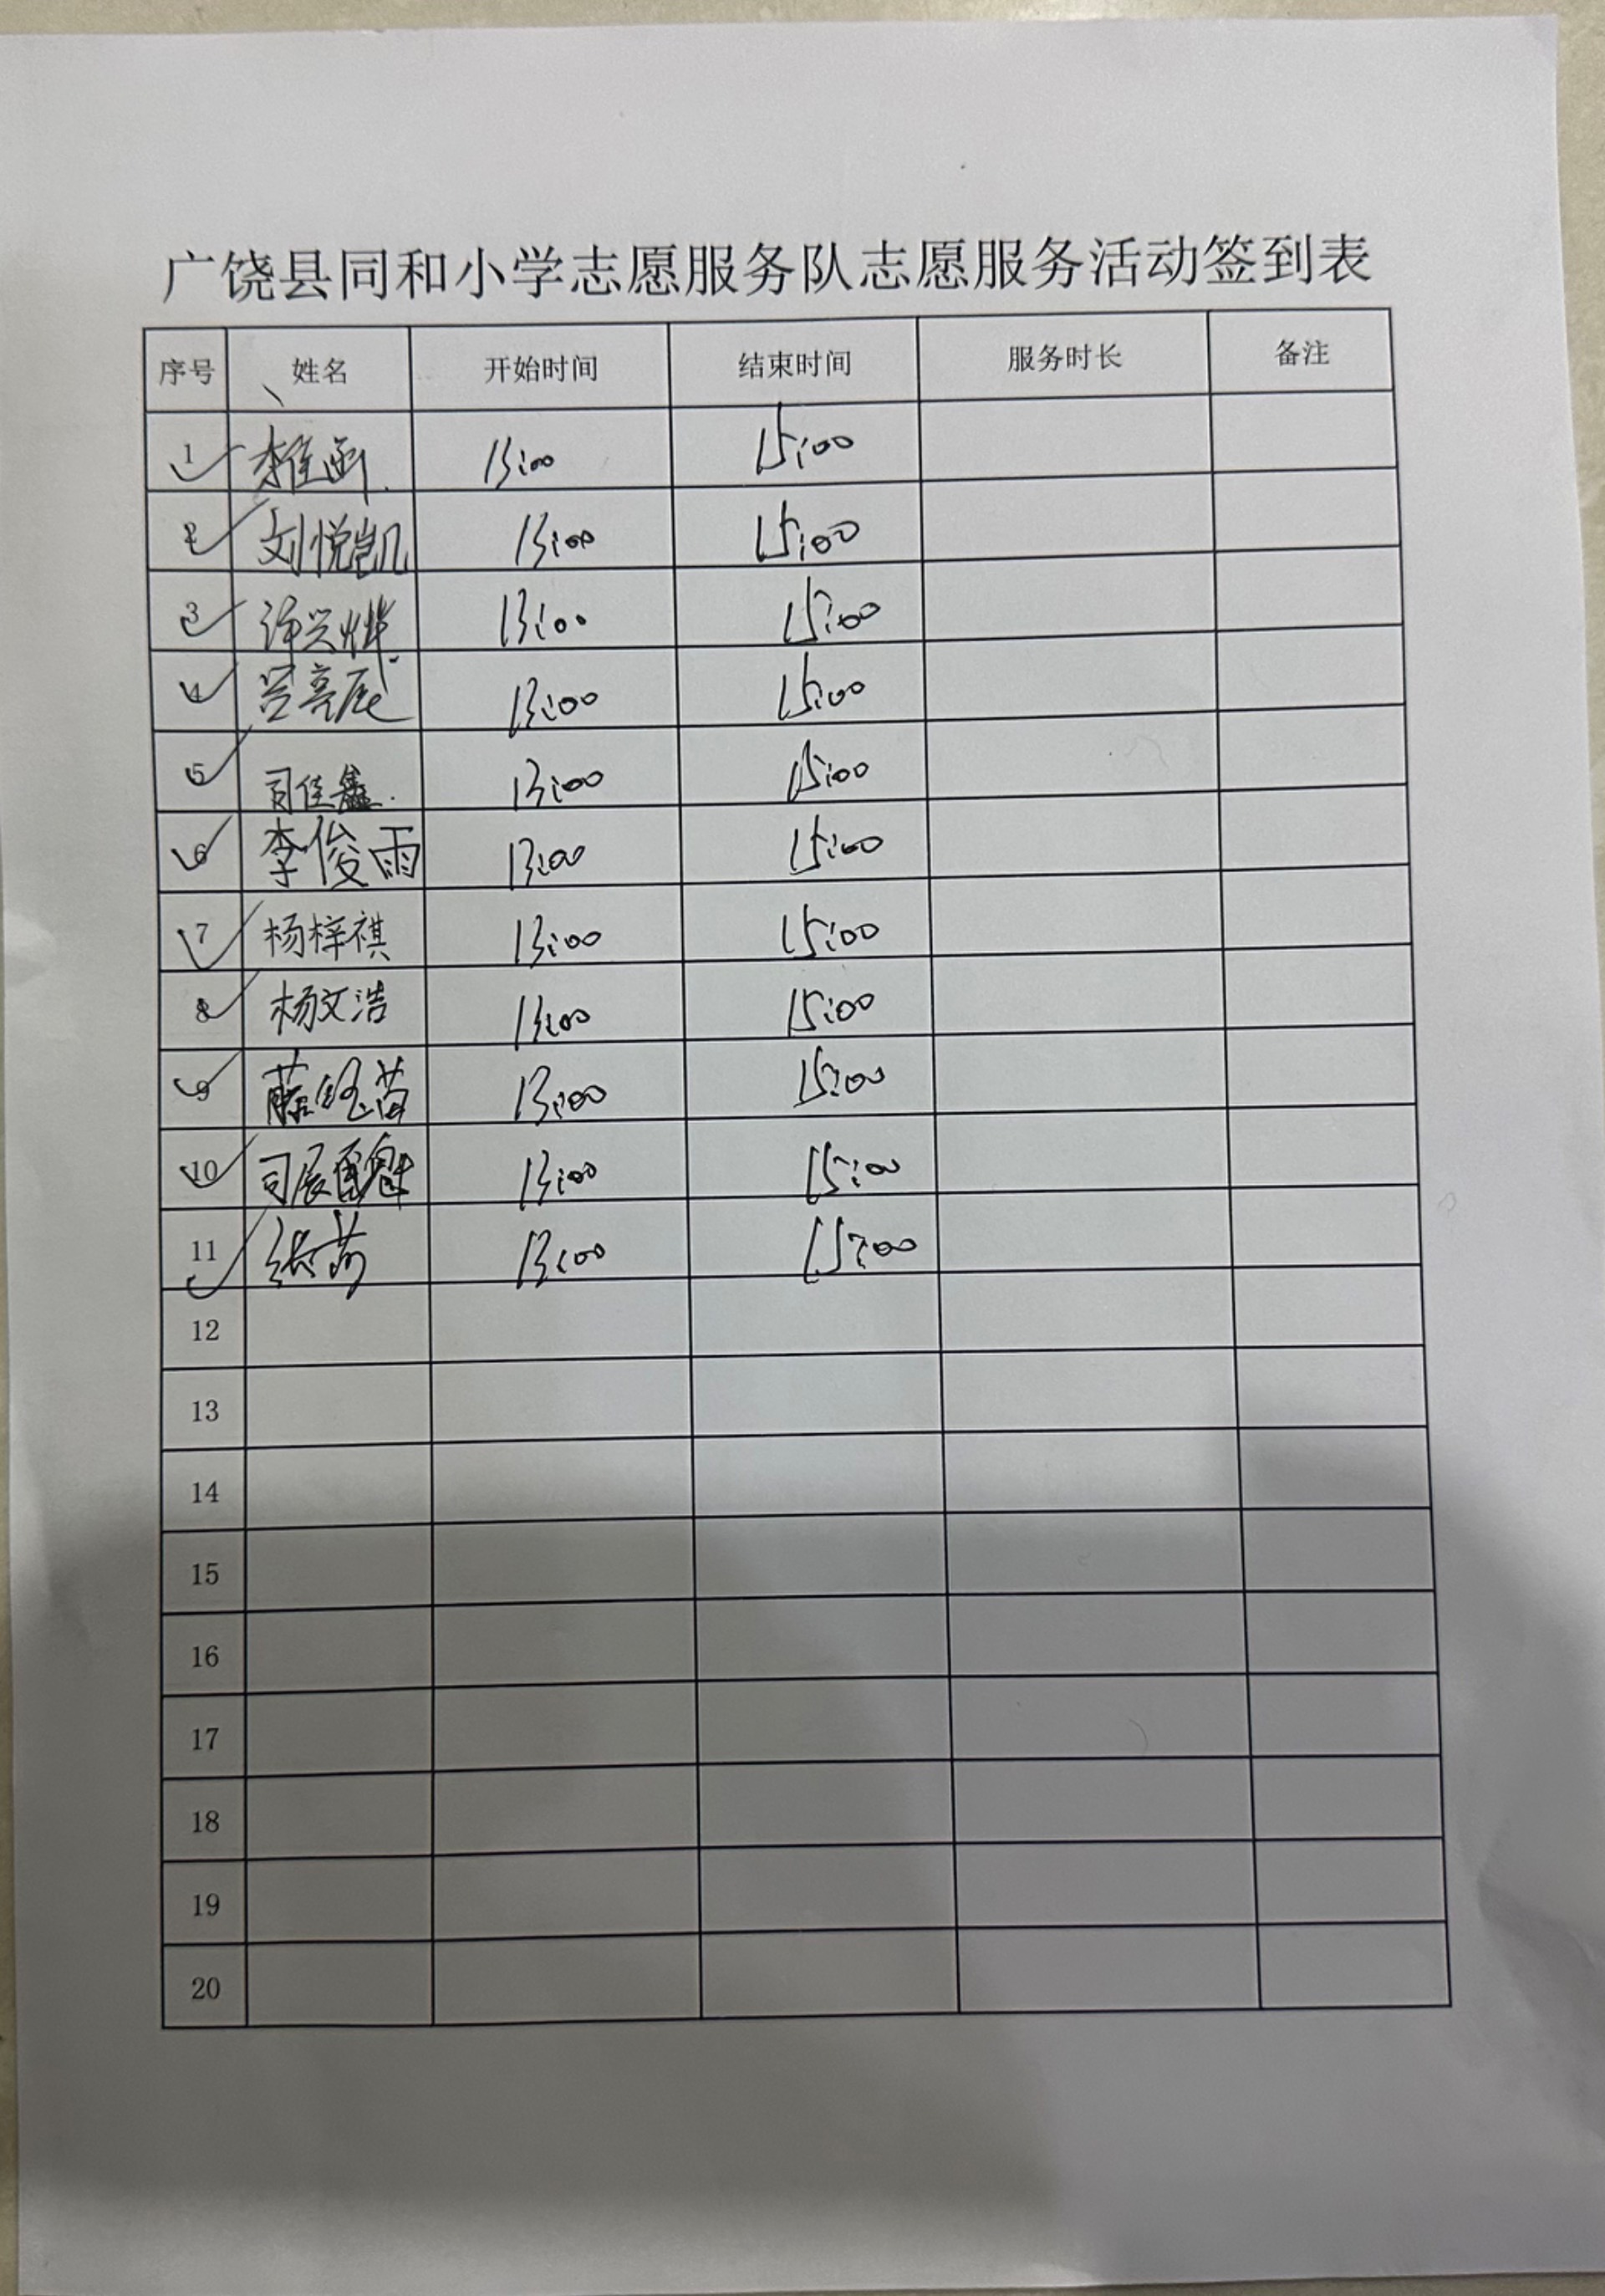 广饶县同和小学志愿服务队志愿服务活动签到表
序号 姓名 开始时间 结束时间 服务时长 备注
1 李佳函 13:00 15:00
2 刘悦凯 13:00 15:00
3 13:00 15:00
4 吕亮辰 13:00 15:00
5 司佳鑫 13:00 15:00
6 李俊雨 13:00 15:00
7 杨梓祺 13:00 15:00
8 杨文浩 13:00 15:00
9 13:00 15:00
10 13:00 15:00
11 13:00 15:00
12
13
14
15
16
17
18
19
20